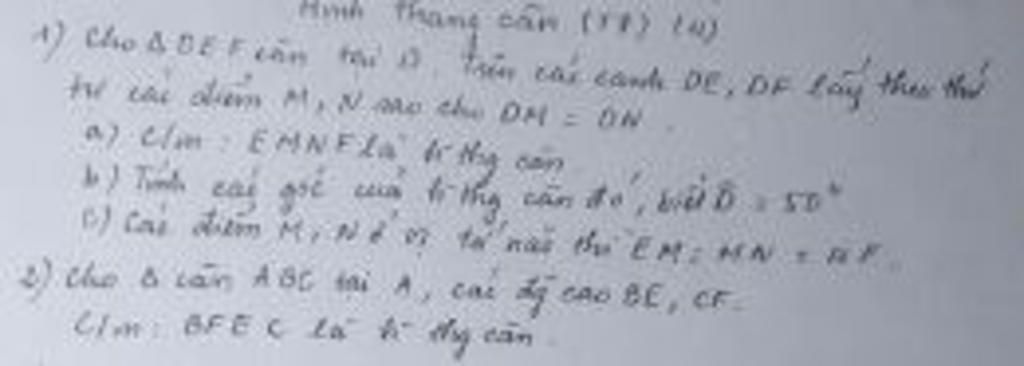 Hình thang cân (T8) (4)
1) Cho Δ DEF cân tại D. Trên các cạnh DE, DF lấy theo thứ
tự các điểm M, N sao cho DM = DN.
a) C/m : EMNF là h̀ thg cân
b) Tính các góc của h̀ thg cân đó, biết D̂ = 50°
c) Các điểm M, N ở vị trí nào thì EM = MN = NF.
2) Cho Δ cân ABC tại A, các đg cao BE, CF.
C/m : BFEC là h̀ thg cân.